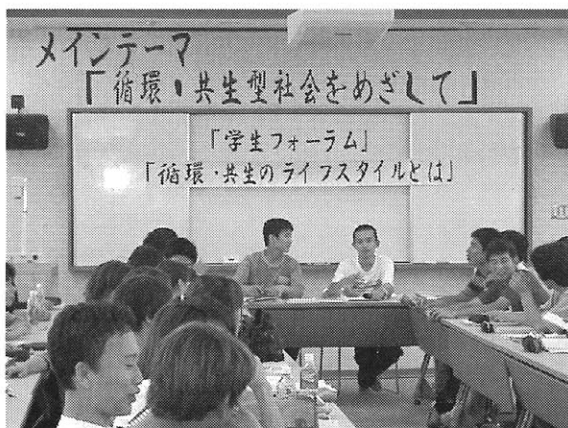 メインテーマ
「循環・共生型社会をめざして」
「学生フォーラム」
「循環・共生のライフスタイルとは」